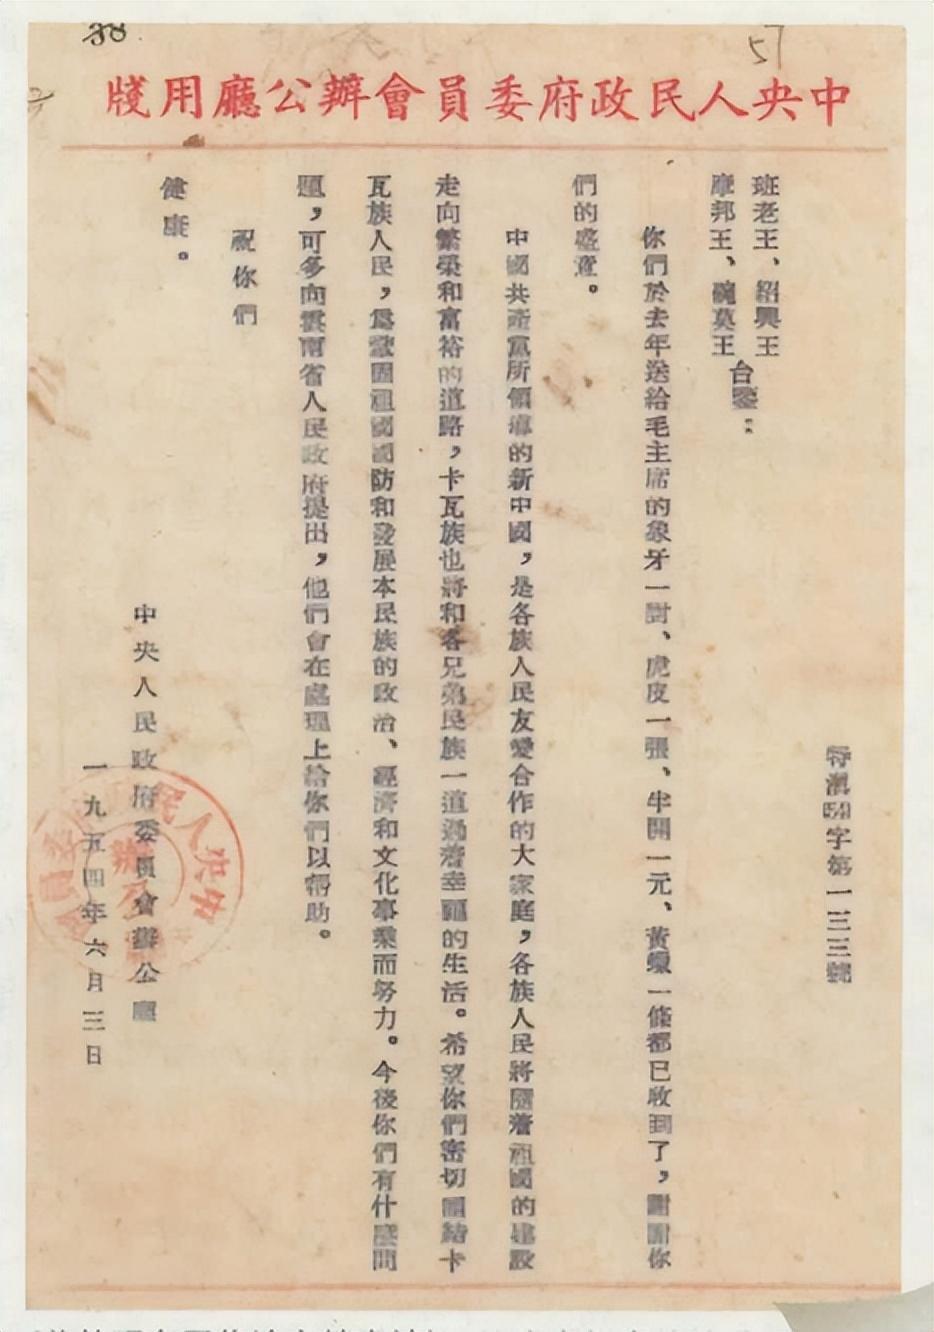 38
51
中央人民政府委員會辦公廳用牋
特滇密字第一三三號
班老王、紹興王
摩邦王、碗莫王
台鑒：
你們於去年送給毛主席的象牙一對、虎皮一張、半開一元、黃蠟一條都已收到了，謝謝你
們的盛意。
中國共產黨所領導的新中國，是各族人民友愛合作的大家庭，各族人民將隨着祖國的建設
走向繁榮和富裕的道路，卡瓦族也將和各兄弟民族一道過着幸福的生活。希望你們密切團結卡
瓦族人民，爲鞏固祖國國防和發展本民族的政治、經濟和文化事業而努力。今後你們有什麼問
題，可多向雲南省人民政府提出，他們會在處理上給你們以幫助。
祝你們
健康。
中央人民政府委員會辦公廳
一九五四年六月三日